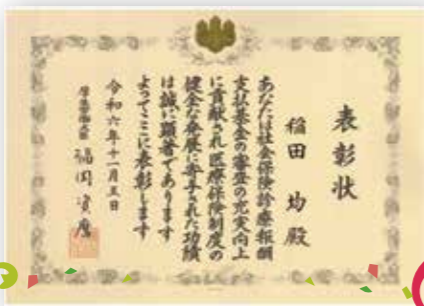 表彰状
稲田 均殿
あなたは社会保険診療報酬
支払基金の審査の充実向上
に貢献され医療保険制度の
健全な発展に寄与された功績
は誠に顕著であります
よってここに表彰します
令和六年十一月五日
厚生労働大臣 福岡資麿